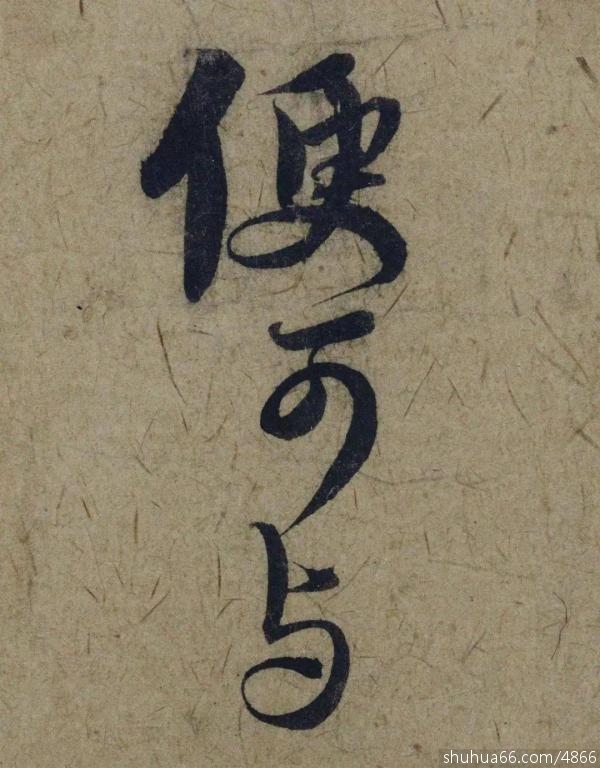 便可与
shuhua66.com/4866